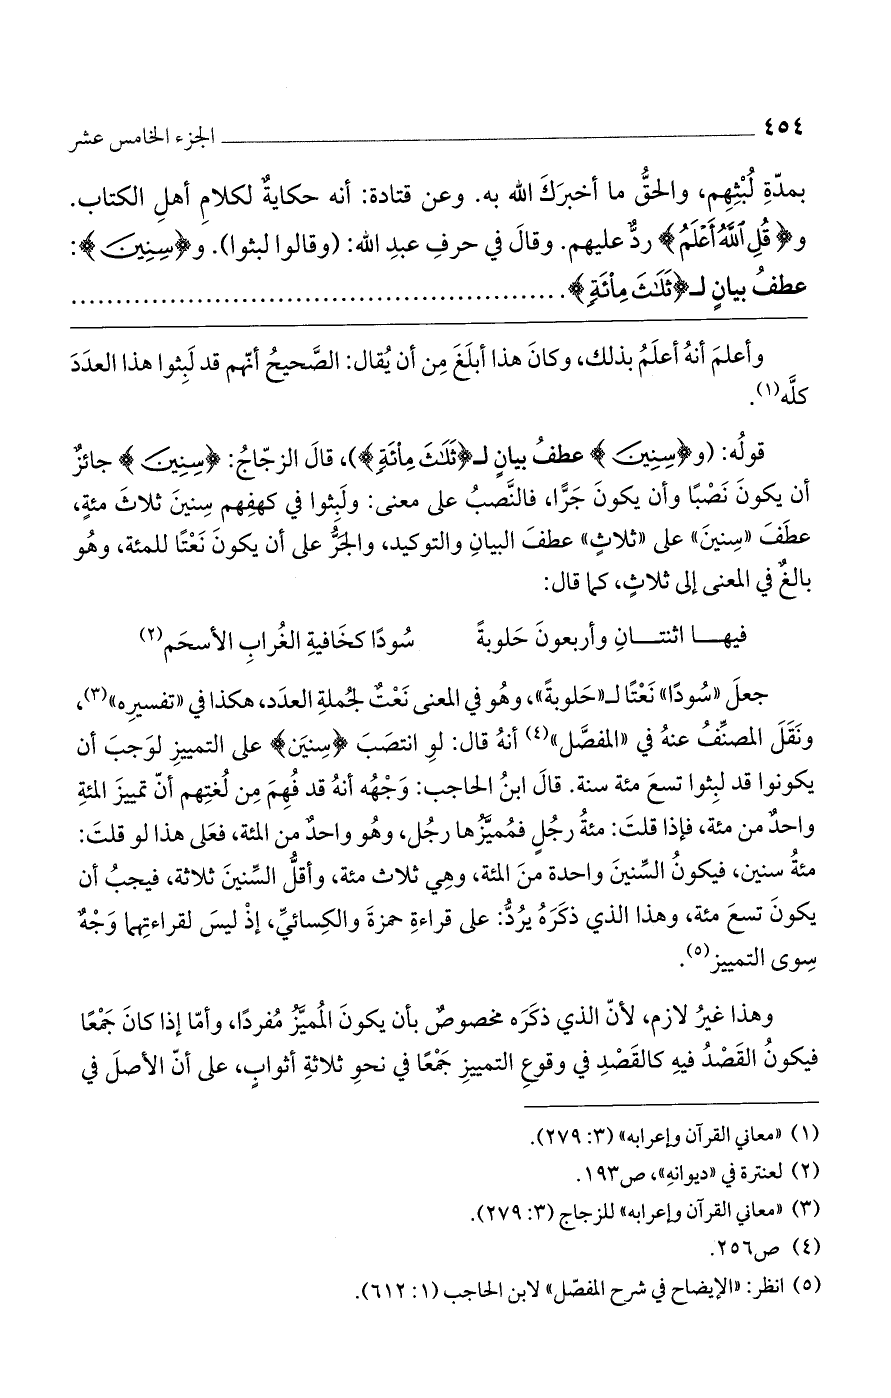 ٤٥٤ الجزء الخامس عشر
بمدّةِ لُبْثِهِم، والحقُّ ما أخبرَكَ الله به. وعن قتادة: أنه حكايةٌ لكلامِ أهلِ الكتاب.
و﴿قُلِ ٱللَّهُ أَعْلَمُ﴾ ردٌّ عليهم. وقالَ في حرفِ عبدِ الله: (وقالوا لبثوا). و﴿سِنِينَ﴾:
عطفُ بيانٍ لـ﴿ثَلَٰثَ مِاْئَةٍ﴾......................................................
وأعلمَ أنهُ أعلَمُ بذلك، وكانَ هذا أبلَغَ مِن أن يُقال: الصَّحيحُ أنّهم قد لَبِثوا هذا العدَدَ
كلَّه(١).
قولُه: (و﴿سِنِينَ﴾ عطفُ بيانٍ لـ﴿ثَلَٰثَ مِاْئَةٍ﴾)، قالَ الزجّاجُ: ﴿سِنِينَ﴾ جائزٌ
أن يكونَ نَصْبًا وأن يكونَ جَرًّا، فالنَّصبُ على معنى: ولَبِثوا في كهفِهم سِنينَ ثلاثَ مئةٍ،
عطَفَ «سِنينَ» على «ثلاثٍ» عطفَ البيانِ والتوكيد، والجَرُّ على أن يكونَ نَعْتًا للمئة، وهُو
بالغٌ في المعنى إلى ثلاثٍ، كما قال:
فيهــا اثنتــانِ وأربعونَ حَلوبةً سُودًا كخَافيةِ الغُرابِ الأسحَم(٢)
جعلَ «سُودًا» نَعْتًا لـ«حَلوبة»، وهُو في المعنى نَعْتٌ لجُملةِ العدَد، هكذا في «تفسيرِه»(٣)،
ونَقَلَ المصنِّفُ عنهُ في «المفصَّل»(٤) أنهُ قال: لوِ انتصَبَ ﴿سِنيَن﴾ على التمييزِ لوَجبَ أن
يكونوا قد لبِثوا تسعَ مئة سنة. قالَ ابنُ الحاجب: وَجْهُه أنهُ قد فُهِمَ مِن لُغتِهم أنّ تمييزَ المئةِ
واحدٌ من مئة، فإذا قلتَ: مئةُ رجُلٍ فمُميَّزُها رجُل، وهُو واحدٌ من المئة، فعَلى هذا لو قلتَ:
مئةُ سنين، فيكونُ السِّنينَ واحدة منَ المئة، وهِي ثلاث مئة، وأقلُّ السِّنينَ ثلاثة، فيجبُ أن
يكونَ تسعَ مئة، وهذا الذي ذكَرَهُ يرُدُّ: على قراءةِ حمزةَ والكِسائيِّ، إذْ ليسَ لقراءتِهما وَجْهٌ
سِوى التمييز(٥).
وهذا غيرُ لازم، لأنّ الذي ذكَرَه مخصوصٌ بأن يكونَ المُميَّزُ مُفردًا، وأمّا إذا كانَ جَمْعًا
فيكونُ القَصْدُ فيهِ كالقَصْدِ في وقوعِ التمييزِ جَمْعًا في نحوِ ثلاثةِ أثوابٍ، على أنّ الأصلَ في
(١) «معاني القرآن وإعرابه» (٣: ٢٧٩).
(٢) لعنترة في «ديوانهِ»، ص١٩٣.
(٣) «معاني القرآن وإعرابه» للزجاج (٣: ٢٧٩).
(٤) ص٢٥٦.
(٥) انظر: «الإيضاح في شرح المفصّل» لابن الحاجب (١: ٦١٢).